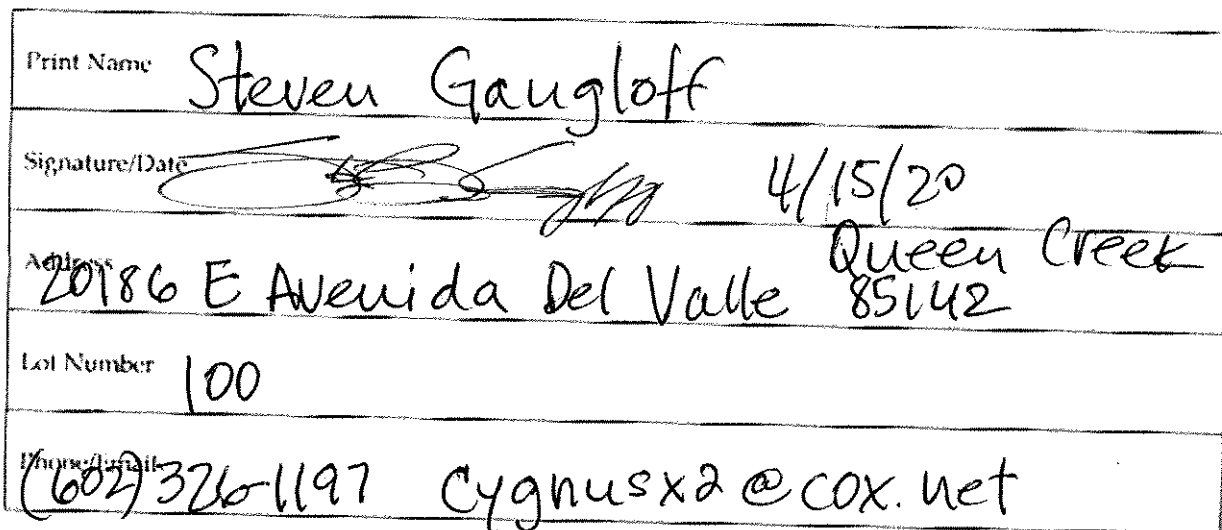 Print Name Steven Gaugloff
Signature/Date 4/15/20
Address 20186 E Avenida Del Valle Queen Creek 85142
Lot Number 100
Phone/Email (602) 326-1197 Cygnusx2@cox.net